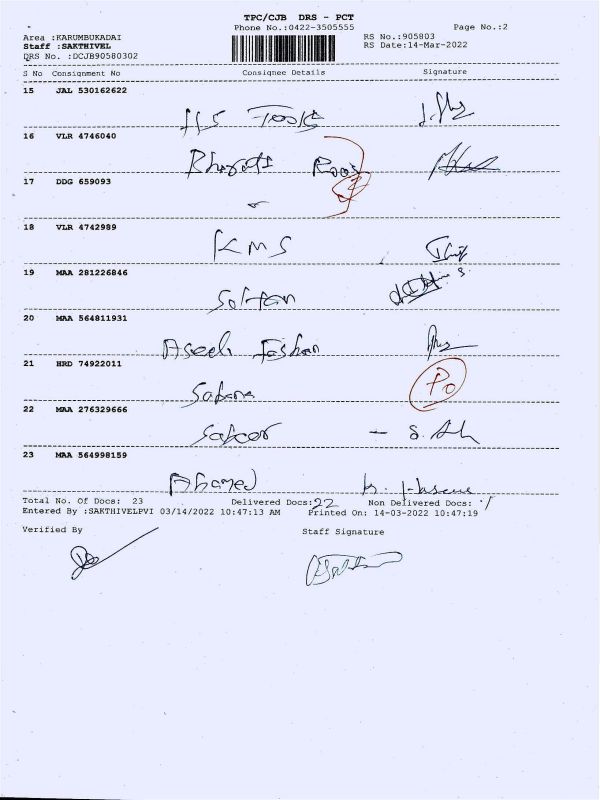 TPC/CJB DRS - PCT
Phone No.:0422-3505555 Page No.:2
Area :KARUMBUKADAI RS No.:905803
Staff :SAKTHIVEL RS Date:14-Mar-2022
DRS No. :DCJB90580302
S No Consignment No Consignee Details Signature
15 JAL 530162622
Tools
16 VLR 4746040
Bharati
17 DDG 659093
18 VLR 4742989
KMS
19 MAA 281226846
Soltan
20 MAA 564811931
Aseeli Fashan
21 HRD 74922011
Sabana Po
22 MAA 276329666
Safeer
23 MAA 564998159
Ahamed
Total No. Of Docs: 23 Delivered Docs: 22 Non Delivered Docs: 1
Entered By :SAKTHIVELPVI 03/14/2022 10:47:13 AM Printed On: 14-03-2022 10:47:19
Verified By Staff Signature